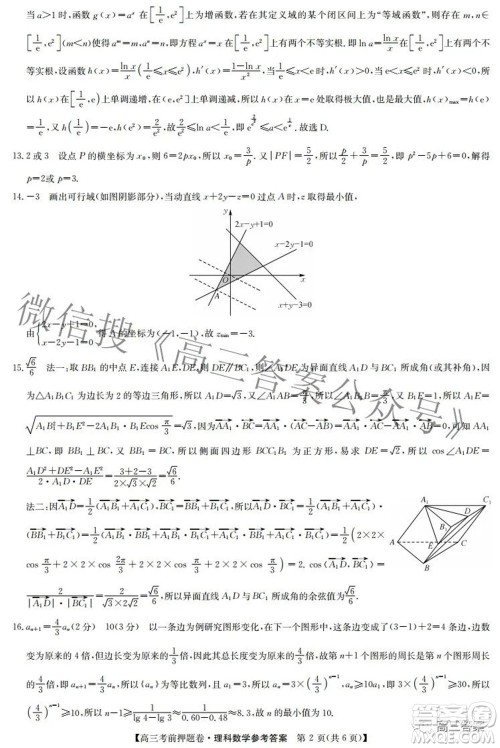 当a>1时,函数g(x)=aˣ在[1/e,e²]上为增函数,若在其定义域的某个闭区间上为“等域函数”,则存在m,n∈
[1/e,e²](m<n)使得aᵐ=m,aⁿ=n,即方程aˣ=x在[1/e,e²]上有两个不等实根.即ln a=ln x/x在[1/e,e²]上有两个不
等实根,设函数h(x)=ln x/x(1/e≤x≤e²),h′(x)=(1-ln x)/x²,当1/e≤x<e时,h′(x)>0;当e<x≤e²时,h′(x)<0,所
以h(x)在[1/e,e)上单调递增,在(e,e²]上单调递减,所以h(x)在x=e处取得极大值,也是最大值,h(x)max=h(e)
=1/e,又h(1/e)=-e,h(e²)=2/e²,故2/e²≤ln a<1/e,即e^(2/e²)≤a<e^(1/e).故选D.
13.2或3 设点P的横坐标为x₀,则6=2px₀,所以x₀=3/p.又|PF|=5/2,所以p/2+3/p=5/2,即p²-5p+6=0.解得
p=2或p=3.
14.-3 画出可行域(如图阴影部分),当动直线x+2y-z=0过点A时,z取得最小值,
y
2x-y+1=0
x-2y-1=0
O
x
A
x+y-3=0
由{2x-y+1=0,
x-2y-1=0 得A的坐标为(-1,-1),故zmin=-3.
15.√6/6 法一:取BB₁的中点E,连接A₁E,DE,则DE∥BC₁,则∠A₁DE为异面直线A₁D与BC₁所成角(或其补角).因
为△A₁B₁C₁为边长为2的等边三角形,所以A₁D=√3.又∠A₁B₁B=π/3,所以A₁E=
√(A₁B₁²+B₁E²-2A₁B₁·B₁Ecos π/3)=√3.因为AA₁·BC=AA₁·(AC-AB)=AA₁·AC-AA₁·AB=0,可知
AA₁⊥BC,即BB₁⊥BC,又BB₁=BC,所以四边形BCC₁B₁为正方形,易求DE=√2,所以cos∠A₁DE=
(A₁D²+DE²-A₁E²)/(2·A₁D·DE)=(3+2-3)/(2×√3×√2)=√6/6.
法二:因为A₁D=1/2(A₁B₁+A₁C₁),BC₁=BB₁+B₁C₁=BB₁+A₁C₁-A₁B₁,所以A₁D·BC₁=1/2(A₁B₁+A₁C₁)·
(BB₁+A₁C₁-A₁B₁)=1/2(A₁B₁·BB₁+A₁C₁·BB₁+A₁C₁²-A₁B₁²)=1/2(2×2×
cos π/3+2×2×cos 2π/3+2×2-2×2)=2.所以|cos⟨A₁D,BC₁⟩|=
|A₁D·BC₁|/(|A₁D|·|BC₁|)=2/(√3×2√2)=√6/6,所以异面直线A₁D与BC₁所成角的余弦值为√6/6.
A₁
C₁
D
B₁
A
E
C
B
16.aₙ₊₁=4/3aₙ(2分) 10(3分) 以一条边为例研究图形变化,在下一个图形中,这条边变成了(3-1)+2=4条边,边数
变为原来的4倍,但边长变为原来的1/3倍,因此其总长度变为原来的4/3倍,故第n+1个图形的周长是第n个图形周长
的4/3倍,即aₙ₊₁=4/3aₙ,所以{aₙ}为等比数列,且a₁=3,所以aₙ=3·(4/3)ⁿ⁻¹.设第n个图形的周长为48,则3·(4/3)ⁿ⁻¹
=48,所以n-1=1/(lg 4-lg 3)×lg 16≈1.20/(0.60-0.48)≈8.3,故n≈10.
【高三考前押题卷·理科数学参考答案 第2页(共6页)】
微信搜《高三答案公众号》
高三答案